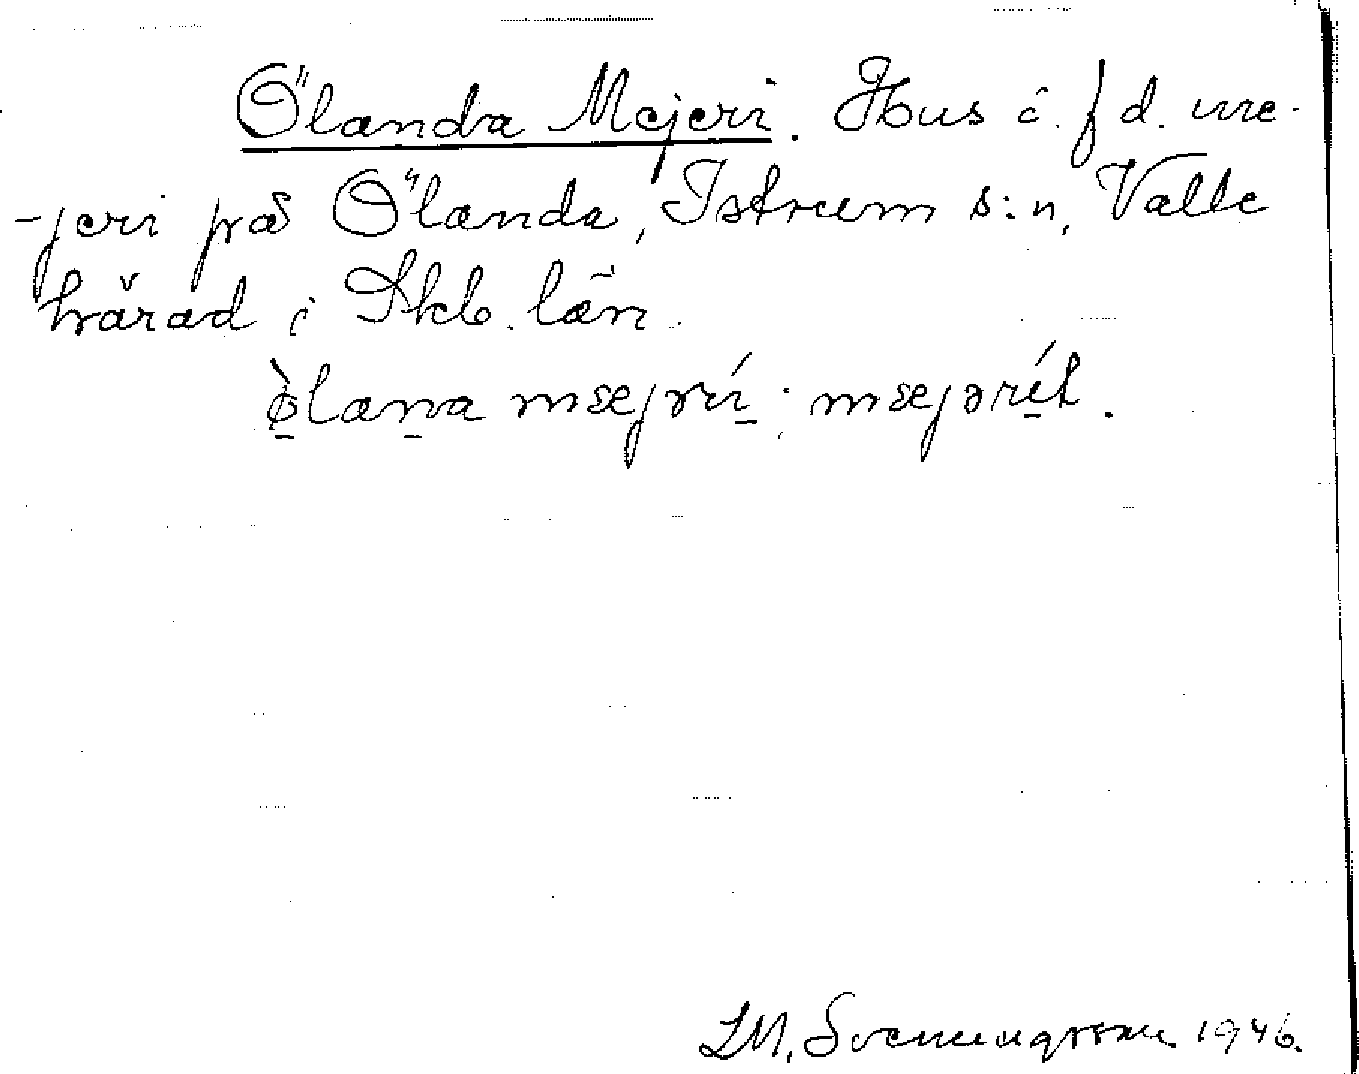 Ölanda Mejeri. Hus o. f d. me-
-jeri på Ölanda, Istrum s:n, Valle
härad i Skb. län.
ø̀lana mæjərí; mæjərít.
L M. Svenungsson 1946.